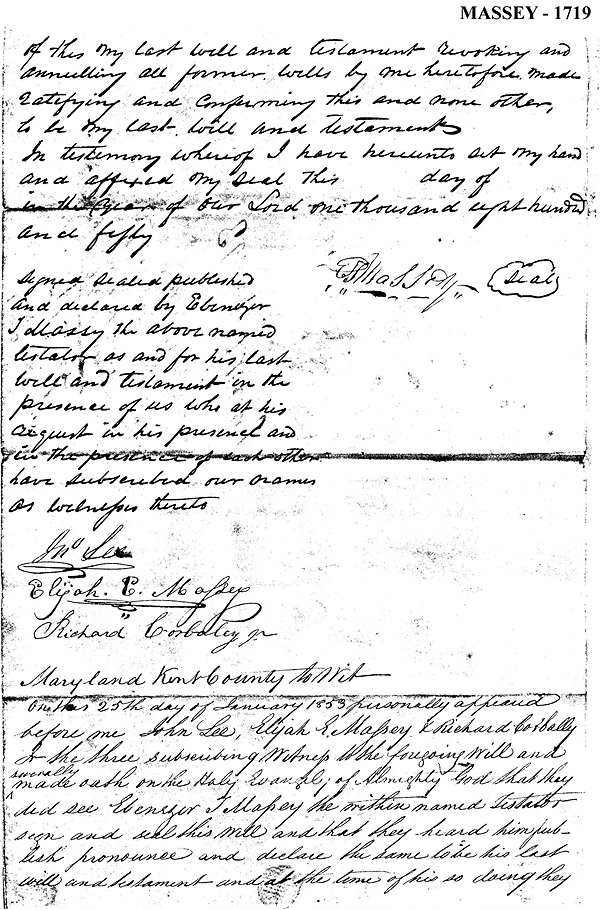 MASSEY - 1719
of this my last will and testament revoking and
annulling all former wills by me heretofore made
ratifying and confirming this and none other,
to be my last will and testament
In testimony whereof I have hereunto set my hand
and affixed my seal this day of
in the year of our Lord one thousand eight hundred
and fifty
E T Massey seal
Signed sealed published
and declared by Ebenezer
T Massey the above named
testator as and for his last
will and testament in the
presence of us who at his
request in his presence and
in the presence of each other
have subscribed our names
as witnesses thereto
Jno Lee
Elijah. E. Massey
Richard Corbaley jr
Maryland Kent County to Wit
On this 25th day of January 1853 personally appeared
before me John Lee, Elijah E Massey & Richard Corbally
the three subscribing Witness to the foregoing Will and
severally made oath on the Holy Evangely of Almighty God that they
did see Ebenezer T Massey the within named testator
sign and seal this Will and that they heard him pub-
lish pronounce and declare the same to be his last
will and testament and at the time of his so doing they